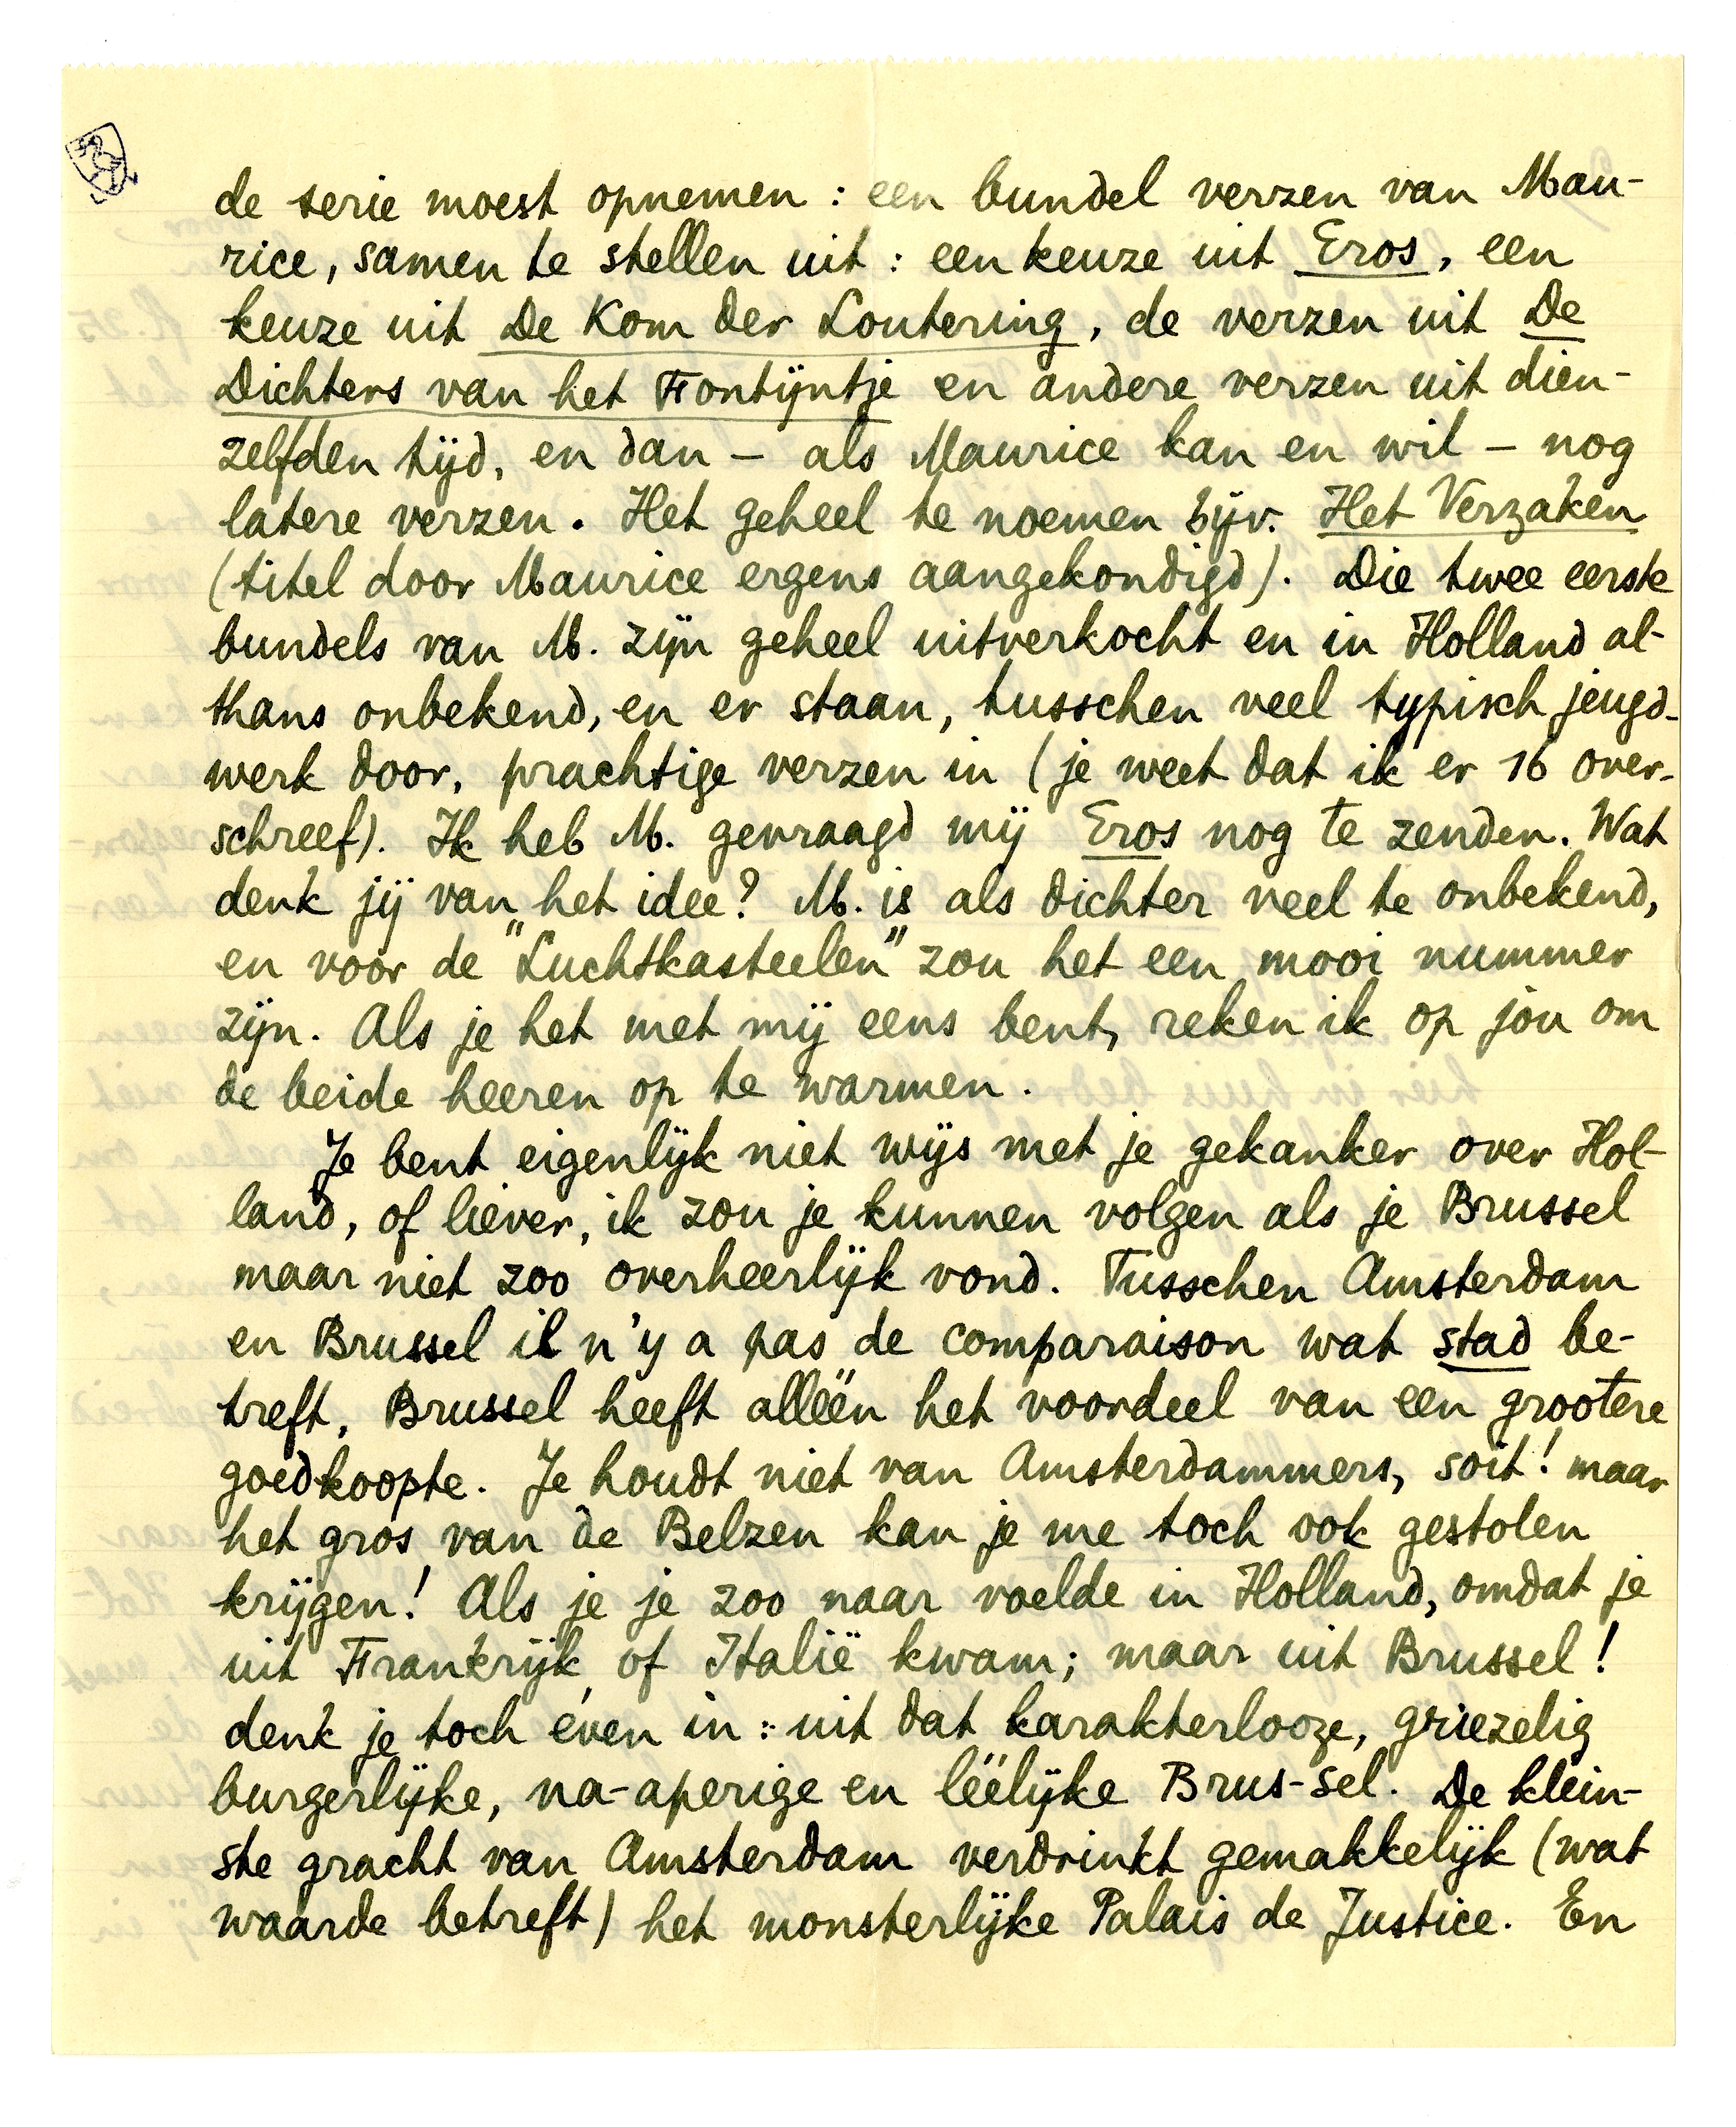 de serie moest opnemen: een bundel verzen van Mau-
rice, samen te stellen uit: een keuze uit Eros, een
keuze uit De Kom der Loutering, de verzen uit De
Dichters van het Fontijntje en andere verzen uit dien-
zelfden tijd, en dan – als Maurice kan en wil – nog
latere verzen. Het geheel te noemen bijv. Het Verzaken
(titel door Maurice ergens aangekondigd). Die twee eerste
bundels van M. zijn geheel uitverkocht en in Holland al-
thans onbekend, en er staan, tusschen veel typisch jeugd-
werk door, prachtige verzen in (je weet dat ik er 16 over-
schreef). Ik heb M. gevraagd mij Eros nog te zenden. Wat
denk jij van het idee? M. is als dichter veel te onbekend,
en voor de "Luchtkasteelen" zou het een mooi nummer
zijn. Als je het met mij eens bent, reken ik op jou om
de beide heeren op te warmen.
Je bent eigenlijk niet wijs met je gekanker over Hol-
land, of liever, ik zou je kunnen volgen als je Brussel
maar niet zoo overheerlijk vond. Tusschen Amsterdam
en Brussel il n'y a pas de comparaison wat stad be-
treft, Brussel heeft alléén het voordeel van een grootere
goedkoopte. Je houdt niet van Amsterdammers, soit! maar
het gros van de Belzen kan je me toch ook gestolen
krijgen! Als je je zoo naar voelde in Holland, omdat je
uit Frankrijk of Italië kwam; maar uit Brussel!
denk je toch éven in: uit dat karakterlooze, griezelig
burgerlijke, na-aperige en léélijke Brus-sel. De klein-
ste gracht van Amsterdam verdrinkt gemakkelijk (wat
waarde betreft) het monsterlijke Palais de Justice. En